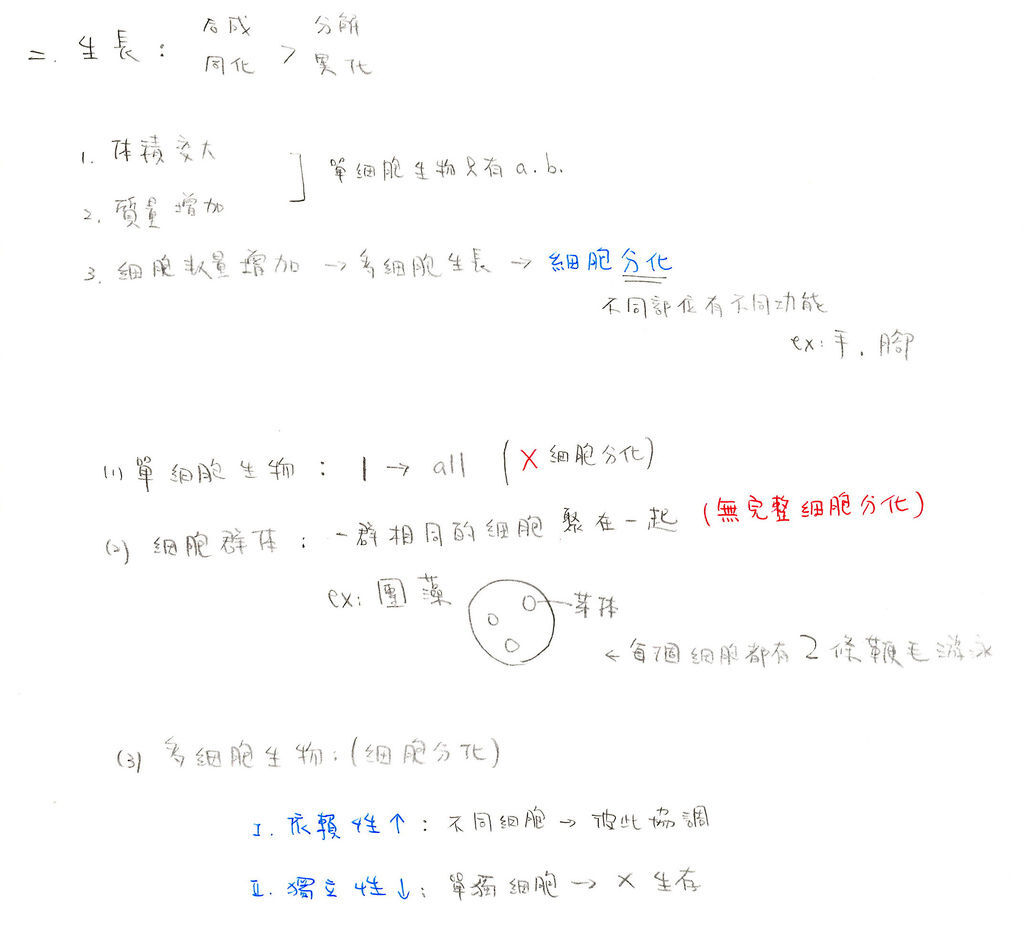 二. 生長： 合成 > 分解
同化 異化
1. 体積变大
單細胞生物只有 a. b.
2. 質量增加
3. 細胞数量增加 → 多細胞生長 → 細胞分化
不同部位有不同功能
ex: 手, 腳
(1) 單細胞生物： 1 → all (X 細胞分化)
(2) 細胞群体： 一群相同的細胞聚在一起 (無完整細胞分化)
ex: 團藻
芽体
← 每個細胞都有2條鞭毛游泳
(3) 多細胞生物：(細胞分化)
I. 依賴性↑： 不同細胞 → 彼此協調
II. 獨立性↓： 單獨細胞 → X 生存